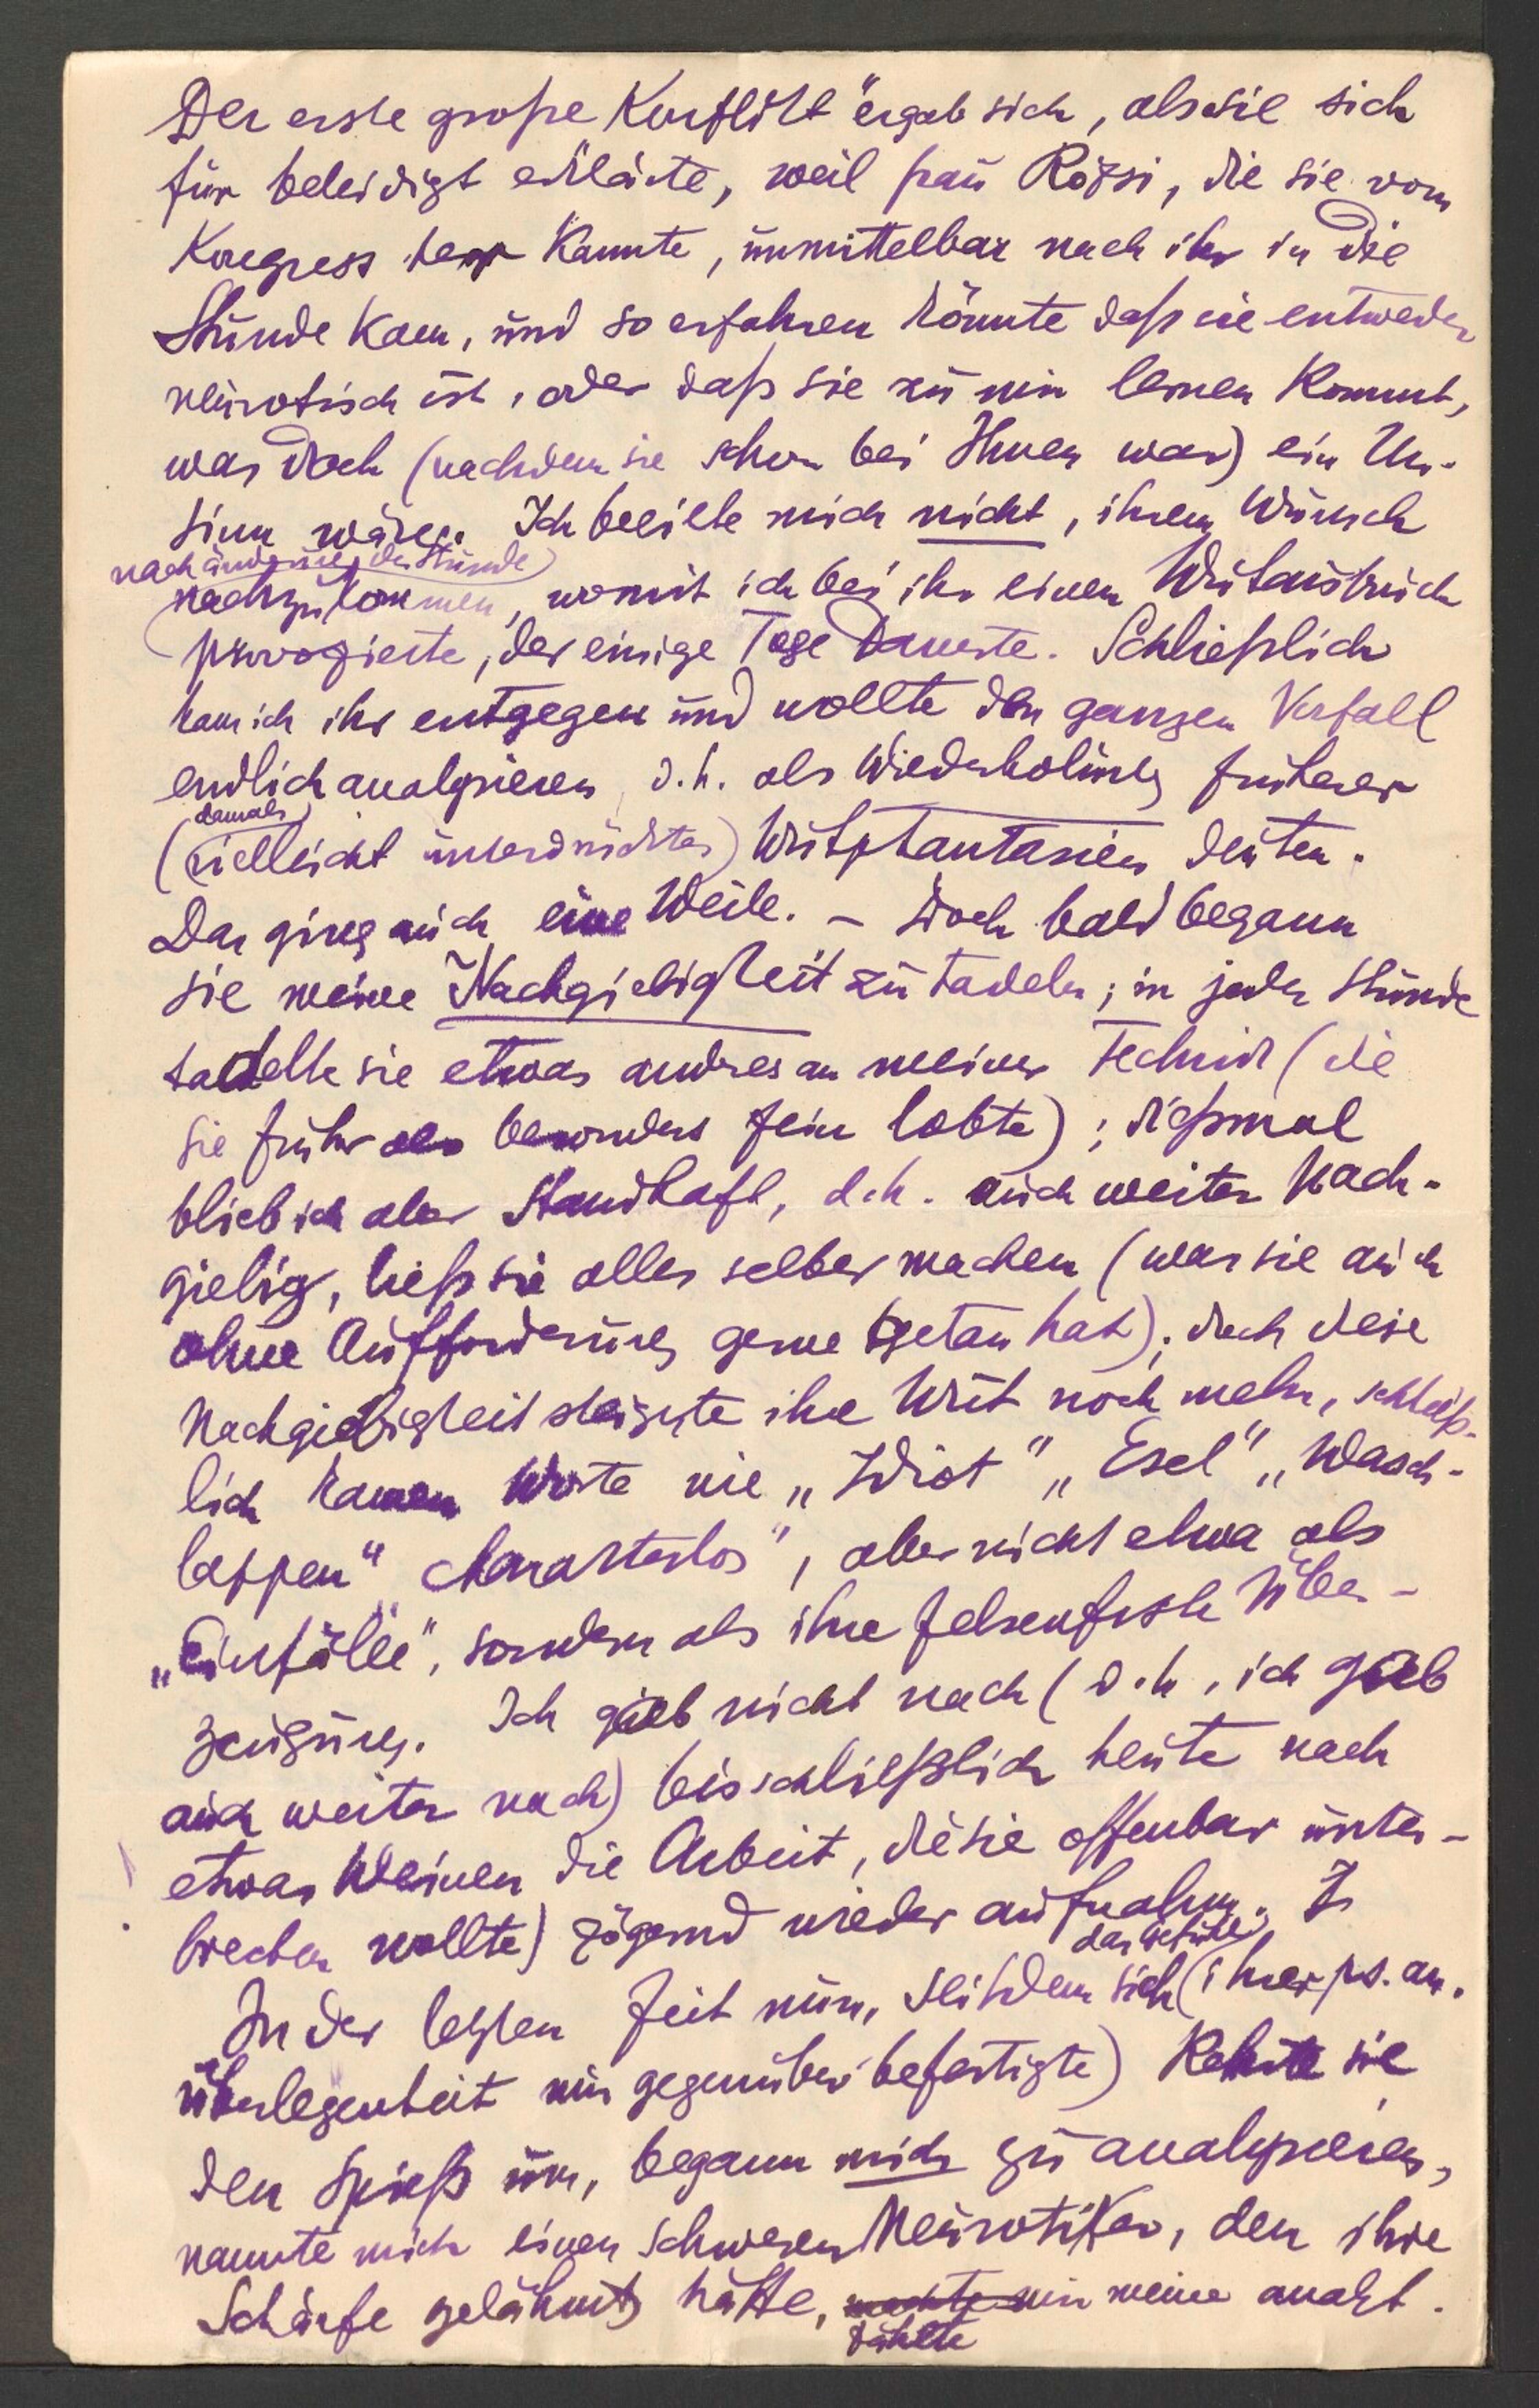 Der erste große Konflikt "ergab sich, als sie sich
für beleidigt erklärte, weil frau Rózsi, die sie vom
Kongress her kannte, unmittelbar nach ihr in die
Stunde kam, und so erfahren könnte daß sie entweder
neurotisch ist, oder daß sie zu mir lernen kommt,
was doch (nachdem sie schon bei Ihnen war) ein Un-
sinn wäre. Ich beeilte mich nicht, ihrem Wunsch
nach änderung der Stunde
nachzukommen, womit ich bei ihr einen Wutausbruch
provozierte, der einige Tage dauerte. Schließlich
kam ich ihr entgegen und wollte den ganzen Vorfall
endlich analysieren, d.h. als Wiederholung früherer
damals
(vielleicht unterdrückter) Wutphantasien deuten.
Das ging auch eine Weile. – Doch bald begann
sie meine Nachgiebigkeit zu tadeln; in jeder Stunde
tadelte sie etwas andres an meiner Technik (die
sie früher als besonders fein lobte); dießmal
blieb ich aber standhaft, d.h. auch weiter nach-
giebig, ließ sie alles selber machen (was sie auch
ohne Aufforderung gerne getan hat); doch diese
Nachgiebigkeit steigerte ihre Wut noch mehr, schließ-
lich kamen Worte wie „Idiot" „Esel" „Wasch-
lappen" „charakterlos", aber nicht etwa als
„Einfälle", sondern als ihre felsenfeste Über-
zeugung. Ich gab nicht nach (d.h. ich gab
auch weiter nach) bis schließlich heute nach
etwas Weinen die Arbeit, die sie offenbar unter-
brechen wollte) zögernd wieder aufnahm.
das Gefühl
In der letzten Zeit nun, seitdem sich (ihrer ps. an.
Überlegenheit mir gegenüber befestigte) kehrte sie
den Spieß um, begann mich zu analysieren,
nannte mich einen schweren Neurotiker, den ihre
Schärfe gelähmt hätte, machte mir meine analyt.